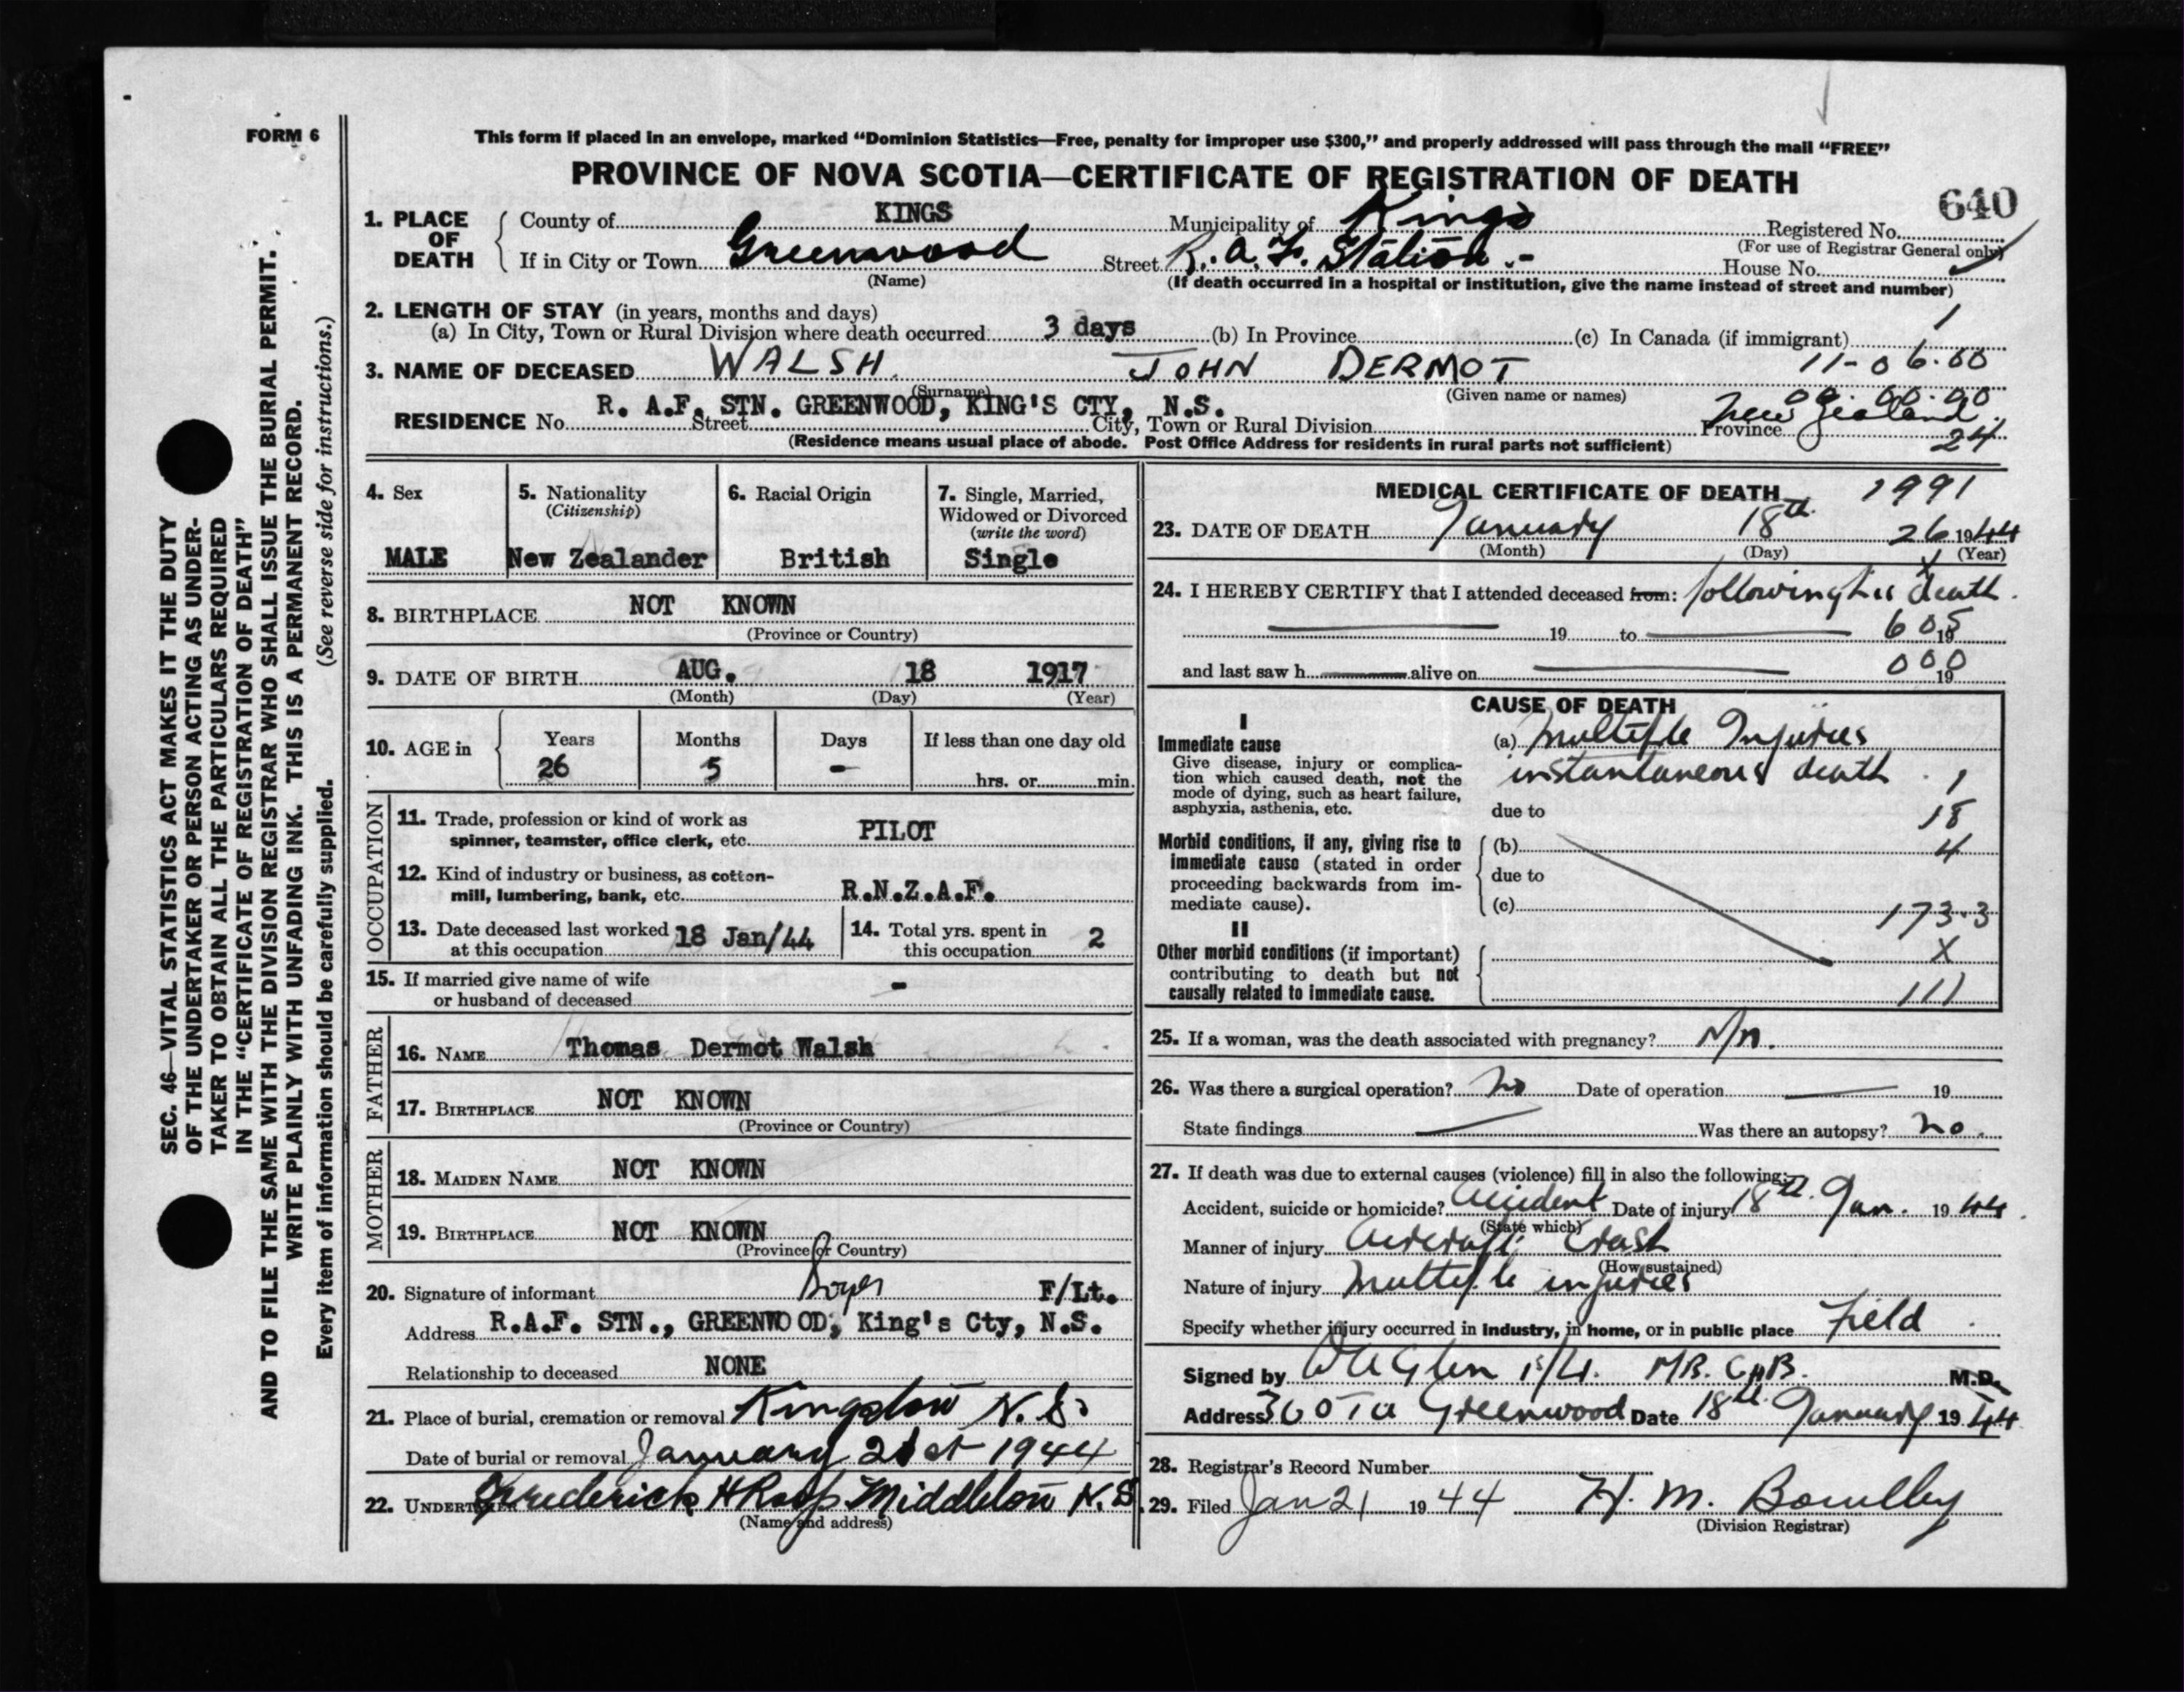 FORM 6
This form if placed in an envelope, marked “Dominion Statistics—Free, penalty for improper use $300,” and properly addressed will pass through the mail “FREE”
PROVINCE OF NOVA SCOTIA—CERTIFICATE OF REGISTRATION OF DEATH
640
1. PLACE OF DEATH
County of KINGS Municipality of Kings Registered No.
(For use of Registrar General only)
If in City or Town Greenwood Street R.A.F. Station.- House No.
(Name) (If death occurred in a hospital or institution, give the name instead of street and number)
2. LENGTH OF STAY (in years, months and days)
(a) In City, Town or Rural Division where death occurred 3 days (b) In Province (c) In Canada (if immigrant) 1
3. NAME OF DECEASED WALSH. JOHN DERMOT 11-06.00
(Surname) (Given name or names) 00.00.00
RESIDENCE No. R. A.F. STN. GREENWOOD, KING'S CTY, N.S. Street City, Town or Rural Division Province New Zealand
(Residence means usual place of abode. Post Office Address for residents in rural parts not sufficient) 24
4. Sex
MALE
5. Nationality
(Citizenship)
New Zealander
6. Racial Origin
British
7. Single, Married,
Widowed or Divorced
(write the word)
Single
8. BIRTHPLACE NOT KNOWN
(Province or Country)
9. DATE OF BIRTH AUG. 18 1917
(Month) (Day) (Year)
10. AGE in Years Months Days If less than one day old
26 5 - hrs. or min.
OCCUPATION
11. Trade, profession or kind of work as
spinner, teamster, office clerk, etc. PILOT
12. Kind of industry or business, as cotton-
mill, lumbering, bank, etc. R.N.Z.A.F.
13. Date deceased last worked
at this occupation 18 Jan/44
14. Total yrs. spent in
this occupation 2
15. If married give name of wife
or husband of deceased -
FATHER
16. NAME Thomas Dermot Walsh
17. BIRTHPLACE NOT KNOWN
(Province or Country)
MOTHER
18. MAIDEN NAME NOT KNOWN
19. BIRTHPLACE NOT KNOWN
(Province or Country)
20. Signature of informant F/Lt.
Address R.A.F. STN., GREENWOOD, King's Cty, N.S.
Relationship to deceased NONE
21. Place of burial, cremation or removal Kingston N.S.
Date of burial or removal January 21st 1944
22. UNDERTAKER Frederick H Roop Middleton N.S.
(Name and address)
MEDICAL CERTIFICATE OF DEATH 1991
23. DATE OF DEATH January 18th 26 1944
(Month) (Day) (Year)
x
24. I HEREBY CERTIFY that I attended deceased from: following his death.
19 to 19 605
and last saw h alive on 19 000
CAUSE OF DEATH
I
Immediate cause
Give disease, injury or complica-
tion which caused death, not the
mode of dying, such as heart failure,
asphyxia, asthenia, etc.
(a) Multiple Injuries
instantaneous death. 1
due to 18
Morbid conditions, if any, giving rise to
immediate cause (stated in order
proceeding backwards from im-
mediate cause).
(b) 4
due to
(c) 173.3
II
Other morbid conditions (if important)
contributing to death but not
causally related to immediate cause.
X
111
25. If a woman, was the death associated with pregnancy?
26. Was there a surgical operation? No Date of operation 19
State findings Was there an autopsy? No.
27. If death was due to external causes (violence) fill in also the following:
Accident, suicide or homicide? Accident Date of injury 18th. Jan. 1944.
(State which)
Manner of injury Aircraft Crash
(How sustained)
Nature of injury Multiple injuries
Specify whether injury occurred in industry, in home, or in public place Field
Signed by Glen MB. CHB. M.D.
Address Greenwood Date 18th. January 1944
28. Registrar's Record Number
29. Filed Jan 21 1944 H. M.
(Division Registrar)
SEC. 46—VITAL STATISTICS ACT MAKES IT THE DUTY
OF THE UNDERTAKER OR PERSON ACTING AS UNDER-
TAKER TO OBTAIN ALL THE PARTICULARS REQUIRED
IN THE “CERTIFICATE OF REGISTRATION OF DEATH”
AND TO FILE THE SAME WITH THE DIVISION REGISTRAR WHO SHALL ISSUE THE BURIAL PERMIT.
WRITE PLAINLY WITH UNFADING INK. THIS IS A PERMANENT RECORD.
Every item of information should be carefully supplied. (See reverse side for instructions.)